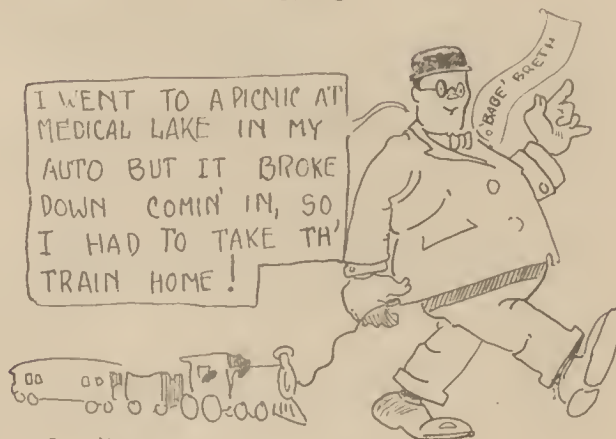 I WENT TO A PICNIC AT
MEDICAL LAKE IN MY
AUTO BUT IT BROKE
DOWN COMIN' IN, SO
I HAD TO TAKE TH'
TRAIN HOME!
'BABE' BRETH